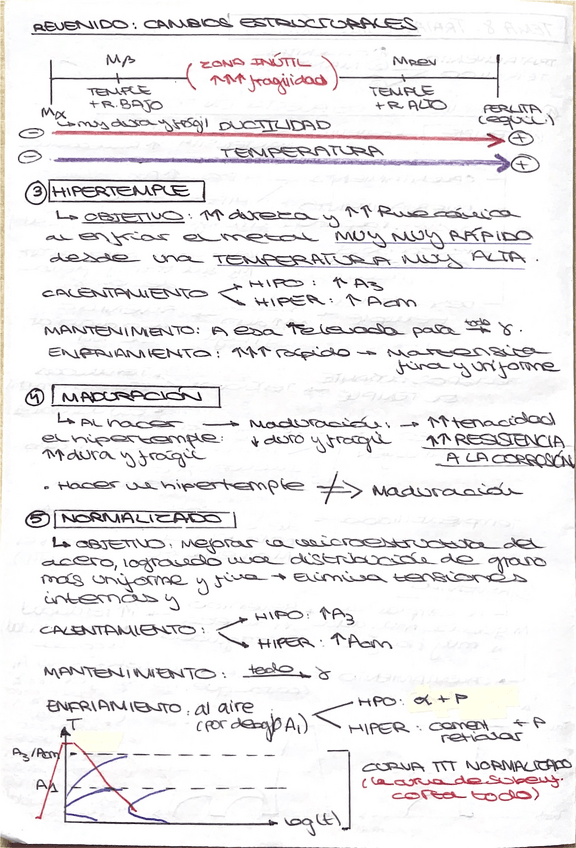 REVENIDO: CAMBIOS ESTRUCTURALES
Mβ
ZONA INÚTIL
↑↑↑ fragilidad
MREV
TEMPLE
+R.BAJO
TEMPLE
+R.ALTO
PERLITA
(equil.)
Mα
↳ muy dura y frágil
DUCTILIDAD
TEMPERATURA
③ HIPERTEMPLE
↳ OBJETIVO: ↑↑ dureza y ↑↑ R mecánica
al enfriar el metal MUY MUY RÁPIDO
desde una TEMPERATURA MUY ALTA.
CALENTAMIENTO
HIPO: ↑A3
HIPER: ↑Acm
MANTENIMIENTO: A esa Tª elevada para todo γ.
ENFRIAMIENTO: ↑↑↑ rápido → Martensita
fina y uniforme
④ MADURACIÓN
↳ Al hacer → Maduración: → ↑↑ tenacidad
el hipertemple: ↓ duro y frágil ↑↑ RESISTENCIA
↑↑ dura y frágil A LA CORROSIÓN
· Hacer un hipertemple ≠> Maduración
⑤ NORMALIZADO
↳ OBJETIVO: Mejorar la microestructura del
acero, logrando una distribución de grano
más uniforme y fina → Elimina tensiones
internas y
CALENTAMIENTO:
HIPO: ↑A3
HIPER: ↑Acm
MANTENIMIENTO: todo → γ
ENFRIAMIENTO: al aire
(por debajo A1)
HIPO: α + P
HIPER: cement + P
reticular
T
A3/Acm
A1
log(t)
CURVA TTT NORMALIZADO
(la curva de superf.
corta todo)